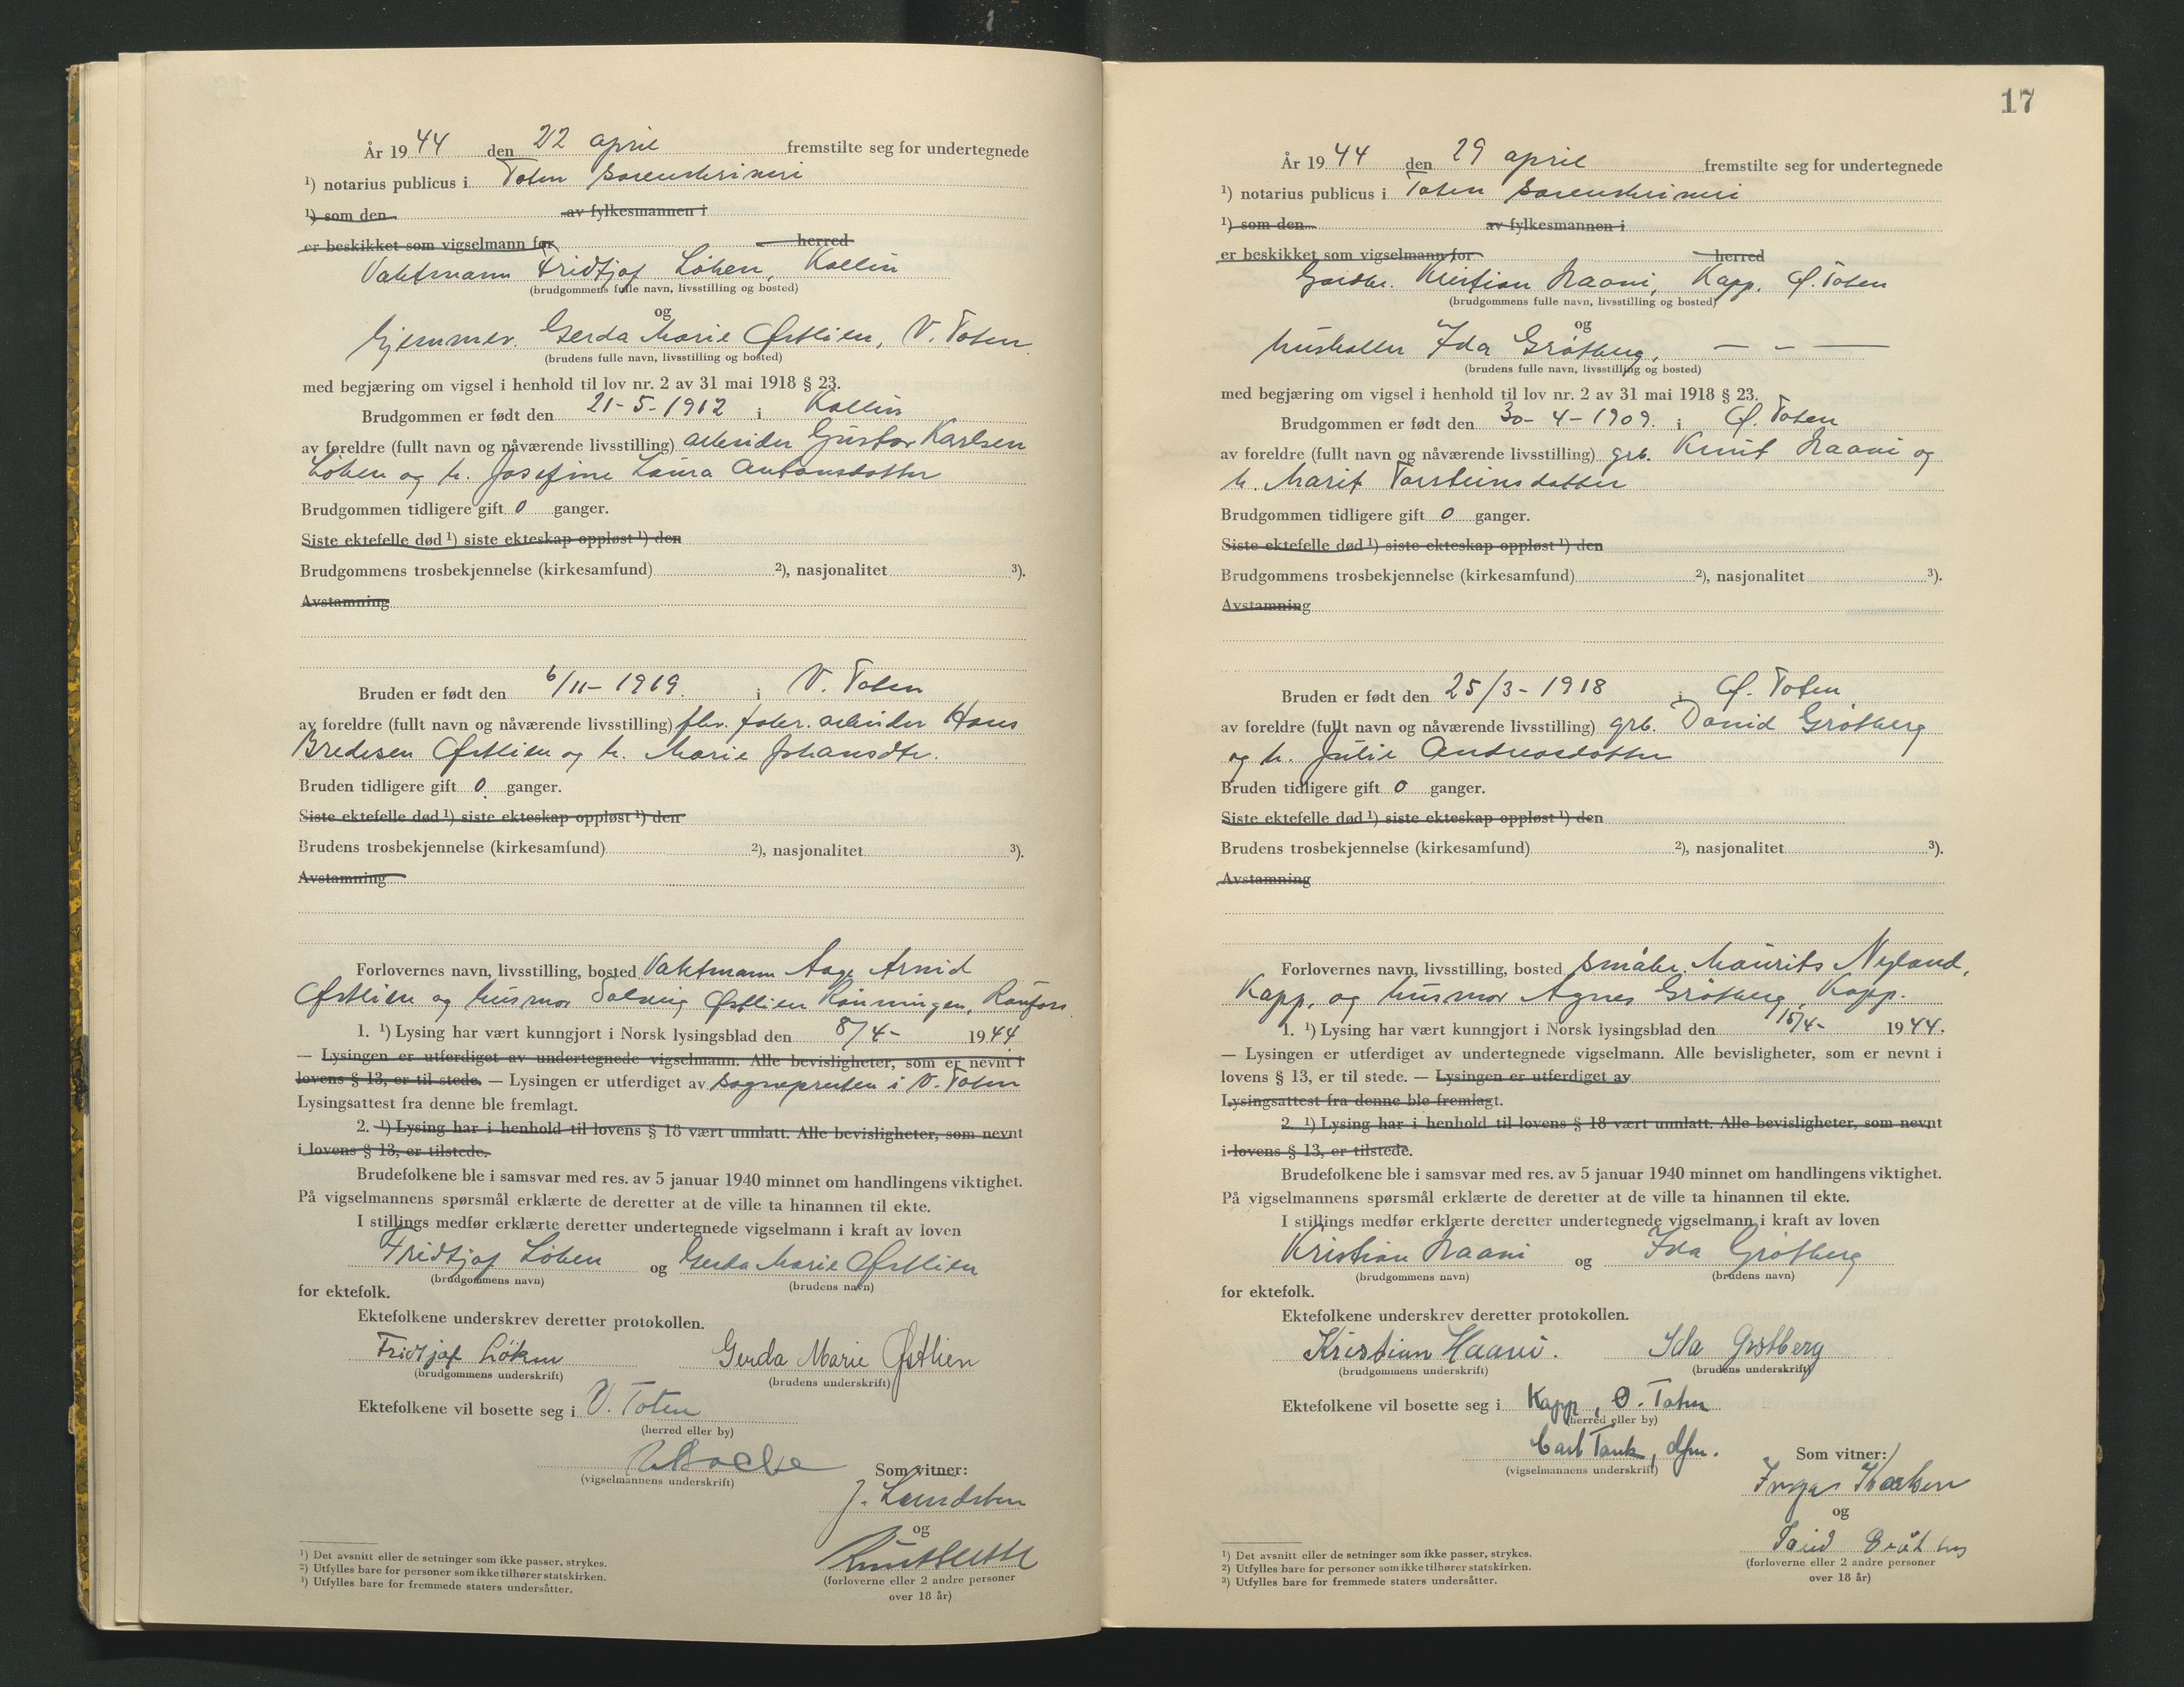 År 1944 den 22 april fremstilte seg for undertegnede
¹) notarius publicus i Toten sorenskriveri
¹) som den av fylkesmannen i
er beskikket som vigselmann for herred
Vaktmann Fridtjof Løken, Kolbu
(brudgommens fulle navn, livsstilling og bosted)
og
hjemmev. Gerda Marie Østlien, V. Toten
(brudens fulle navn, livsstilling og bosted)
med begjæring om vigsel i henhold til lov nr. 2 av 31 mai 1918 § 23.
Brudgommen er født den 21-5-1912 i Kolbu
av foreldre (fullt navn og nåværende livsstilling) arbeider Gustav Karlsen
Løken og h. Josefine Laura Antonsdatter
Brudgommen tidligere gift 0 ganger.
Siste ektefelle død ¹) siste ekteskap oppløst ¹) den
Brudgommens trosbekjennelse (kirkesamfund) ²), nasjonalitet ³).
Avstamning
Bruden er født den 6/11-1919. i V. Toten
av foreldre (fullt navn og nåværende livsstilling) fhv. fabr. arbeider Hans
Bredesen Østlien og h. Marie Johansdtr.
Bruden tidligere gift 0 ganger.
Siste ektefelle død ¹) siste ekteskap oppløst ¹) den
Brudens trosbekjennelse (kirkesamfund) ²), nasjonalitet ³).
Avstamning
Forlovernes navn, livsstilling, bosted Vaktmann Aage Arnid
Østlien og husmor Solveig Østlien Rønningen, Raufoss.
1. ¹) Lysing har vært kunngjort i Norsk lysingsblad den 8/4- 1944
— Lysingen er utferdiget av undertegnede vigselmann. Alle bevisligheter, som er nevnt i
lovens § 13, er til stede. — Lysingen er utferdiget av sognepresten i V. Toten
Lysingsattest fra denne ble fremlagt.
2. ¹) Lysing har i henhold til lovens § 18 vært unnlatt. Alle bevisligheter, som nevnt
i lovens § 13, er tilstede.
Brudefolkene ble i samsvar med res. av 5 januar 1940 minnet om handlingens viktighet.
På vigselmannens spørsmål erklærte de deretter at de ville ta hinannen til ekte.
I stillings medfør erklærte deretter undertegnede vigselmann i kraft av loven
Fridtjof Løken og Gerda Marie Østlien
(brudgommens navn) (brudens navn)
for ektefolk.
Ektefolkene underskrev deretter protokollen.
Fridtjof Løken Gerda Marie Østlien
(brudgommens underskrift) (brudens underskrift)
Ektefolkene vil bosette seg i V. Toten
(herred eller by)
(vigselmannens underskrift) Som vitner:
og
¹) Det avsnitt eller de setninger som ikke passer, strykes.
²) Utfylles bare for personer som ikke tilhører statskirken.
³) Utfylles bare for fremmede staters undersåtter.
(forloverne eller 2 andre personer
over 18 år)
17
År 1944 den 29 april fremstilte seg for undertegnede
¹) notarius publicus i Toten sorenskriveri
¹) som den av fylkesmannen i
er beskikket som vigselmann for herred
Gardbr. Kristian Haani, Kapp, Ø. Toten
(brudgommens fulle navn, livsstilling og bosted)
og
husholder Ida Grøtberg, — - —
(brudens fulle navn, livsstilling og bosted)
med begjæring om vigsel i henhold til lov nr. 2 av 31 mai 1918 § 23.
Brudgommen er født den 30-4-1909. i Ø. Toten
av foreldre (fullt navn og nåværende livsstilling) grb. Knut Haani og
h. Marit Torsteinsdatter
Brudgommen tidligere gift 0 ganger.
Siste ektefelle død ¹) siste ekteskap oppløst ¹) den
Brudgommens trosbekjennelse (kirkesamfund) ²), nasjonalitet ³).
Avstamning
Bruden er født den 25/3-1918 i Ø. Toten
av foreldre (fullt navn og nåværende livsstilling) grb. David Grøtberg
og h. Julie Andreasdatter
Bruden tidligere gift 0 ganger.
Siste ektefelle død ¹) siste ekteskap oppløst ¹) den
Brudens trosbekjennelse (kirkesamfund) ²), nasjonalitet ³).
Avstamning
Forlovernes navn, livsstilling, bosted småbr. Maurits Nyland,
Kapp, og husmor Agnes Grøtberg, Kapp.
1. ¹) Lysing har vært kunngjort i Norsk lysingsblad den 15/4- 1944.
— Lysingen er utferdiget av undertegnede vigselmann. Alle bevisligheter, som er nevnt i
lovens § 13, er til stede. — Lysingen er utferdiget av
Lysingsattest fra denne ble fremlagt.
2. ¹) Lysing har i henhold til lovens § 18 vært unnlatt. Alle bevisligheter, som nevnt
i lovens § 13, er tilstede.
Brudefolkene ble i samsvar med res. av 5 januar 1940 minnet om handlingens viktighet.
På vigselmannens spørsmål erklærte de deretter at de ville ta hinannen til ekte.
I stillings medfør erklærte deretter undertegnede vigselmann i kraft av loven
Kristian Haani og Ida Grøtberg
(brudgommens navn) (brudens navn)
for ektefolk.
Ektefolkene underskrev deretter protokollen.
Kristian Haani. Ida Grøtberg
(brudgommens underskrift) (brudens underskrift)
Ektefolkene vil bosette seg i Kapp, Ø. Toten
(herred eller by)
Carl Tank, dfm. Som vitner:
(vigselmannens underskrift)
og
¹) Det avsnitt eller de setninger som ikke passer, strykes.
²) Utfylles bare for personer som ikke tilhører statskirken.
³) Utfylles bare for fremmede staters undersåtter.
(forloverne eller 2 andre personer
over 18 år)